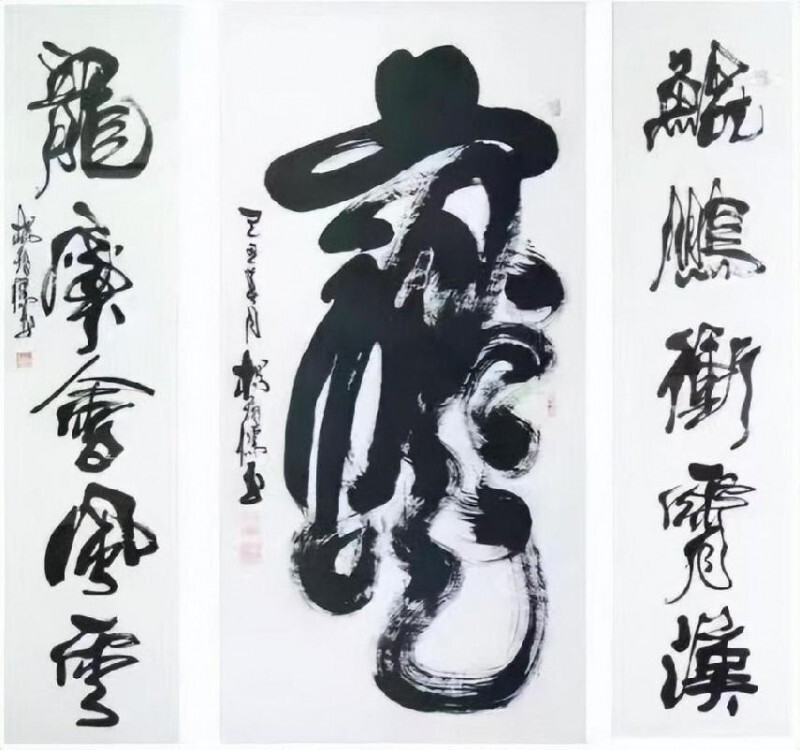 鯤鵬衝霄漢
龍
己丑春月
龍虎會風雲